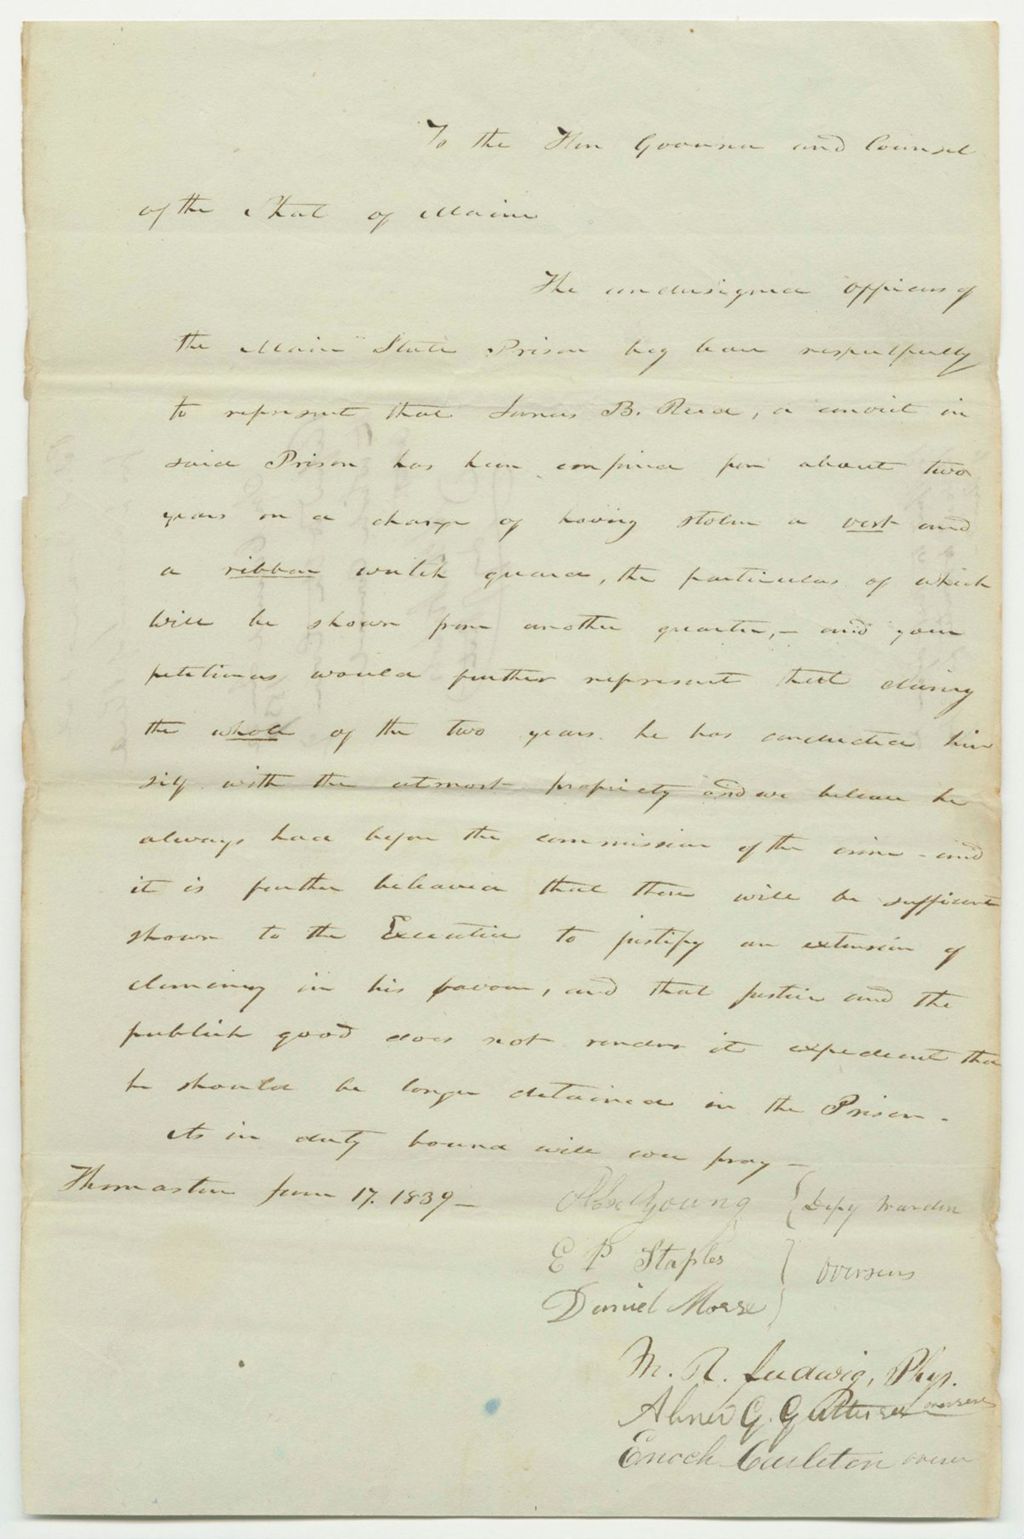 To the Hon Governor and Counsel
of the State of Maine
The undersigned officers of
the Maine State Prison beg leave respectfully
to represent that James B. Reed, a convict in
said Prison has been confined for about two
years on a charge of having stolen a vest and
a ribbon watch guard, the particulars of which
will be shown from another quarter, – and your
petitioners would further represent that during
the whole of the two years he has conducted him
self with the utmost propriety and we believe he
always had before the commission of the crime – and
it is further believed that there will be sufficient
shown to the Executive to justify an extension of
clemency in his favour, and that justice and the
publick good does not render it expedient that
he should be longer detained in the Prison –
As in duty bound will ever pray –
Thomaston June 17. 1839 –
Young } Depy Warden
E P Staples } Overseers
Daniel Morse
M. R. Ludwig, Phys.
Abner G. overseer
Enoch Carleton overseer